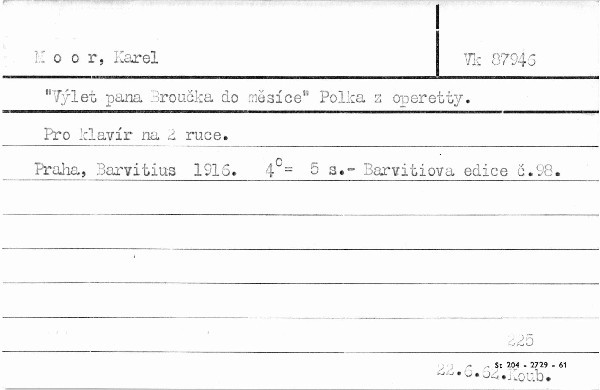 M o o r, Karel
Vk 87946
"Výlet pana Broučka do měsíce" Polka z operetty.
Pro klavír na 2 ruce.
Praha, Barvitius 1916. 4°= 5 s.- Barvitiova edice č.98.
225
St 204 - 2729 - 61
22.6.62.Koub.